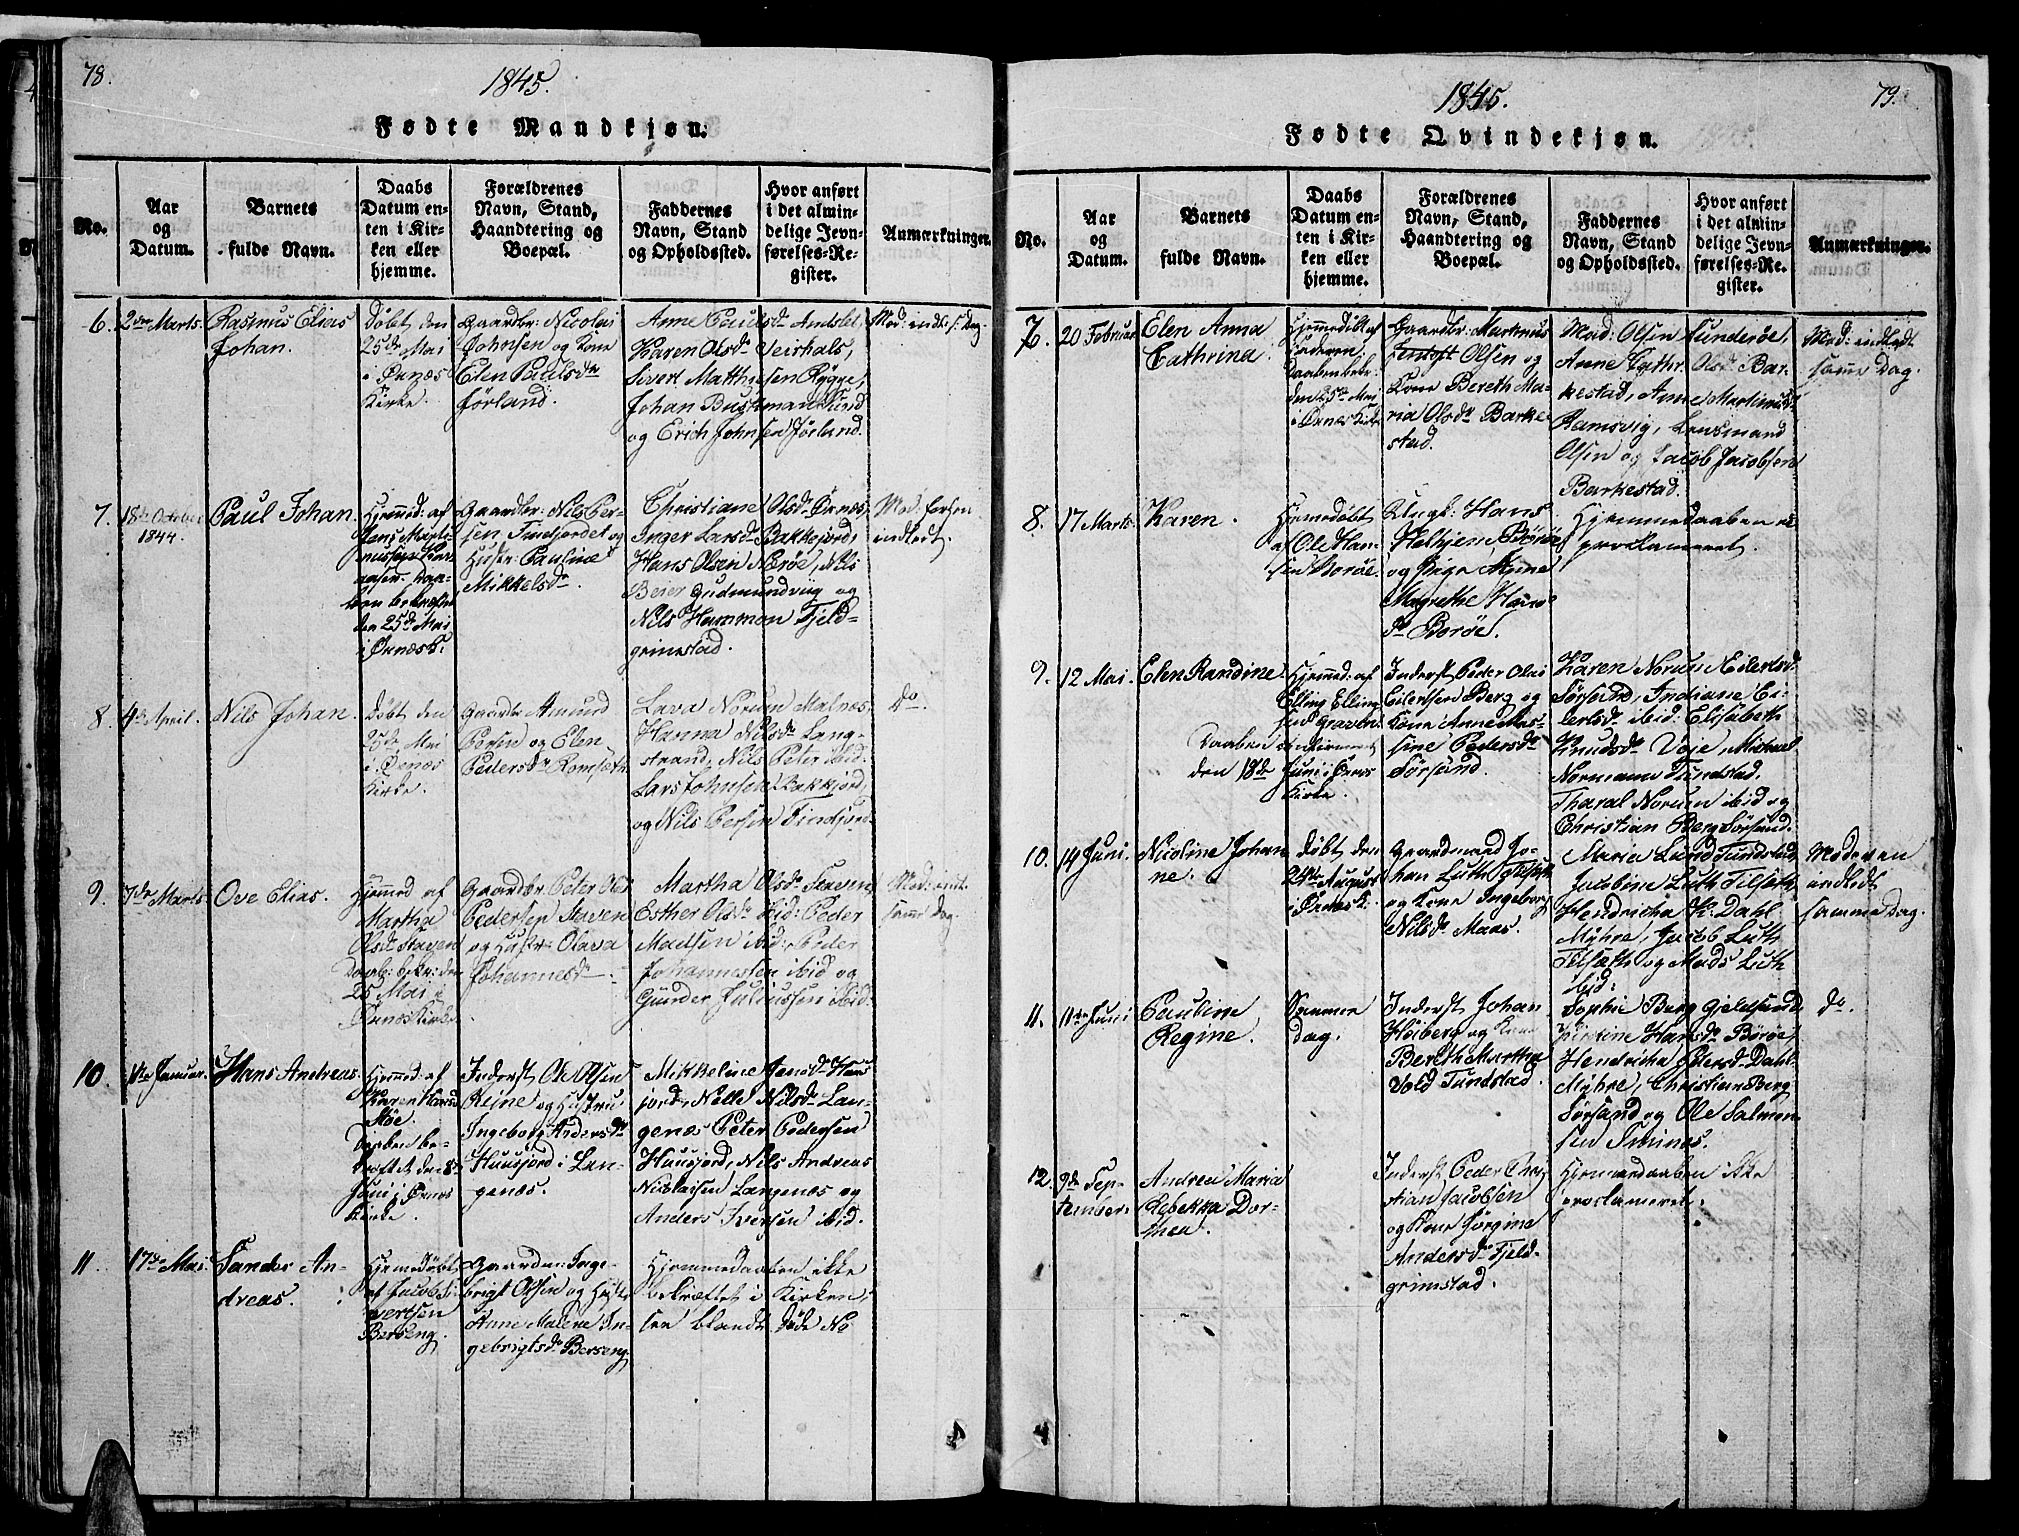 78.
1845.
Fødte Mandkjøn.
No.
Aar
og
Datum.
Barnets
fulde Navn.
Daabs
Datum en-
ten i Kir-
ken eller
hjemme.
Forældrenes
Navn, Stand,
Haandtering og
Boepæl.
Faddernes
Navn, Stand
og Opholdssted.
Hvor anført
i det almin-
delige Jevn-
førelses-Re-
gister.
Anmærkninger.
6.
2den Marts.
Rasmus Elias
Johan.
Døbt den
25de Mai
i Øxnæs
Kirke.
Gaardbr: Nicolai
Johnsen og Kone
Elen Paulsdr
Jörland.
Anne Paulsdr
Karen Olsdr Veishals,
Sivert Matthisen Rygge,
Johan Buschmann
og Erich Johnsen Jörland.
Mod: indl: s: Dag
7.
18de October
1844.
Paul Johan.
Hjemmed: af
den 25de Mai
i Øxnæs K:
Gaardbr: Nils Per-
sen Tindfjordet og
Hustr: Pauline
Mikkelsdr.
Christiane Olsdr Øxnæs,
Inger Larsdr Bakkejord,
Hans Olsen Nærøe, Nils
Beier Gudmundvig og
Nils Hammon Fjeld-
grimstad.
Mod: forhen
indledt.
8.
4de April.
Nils Johan.
Döbt den
25de Mai
i Øxnæs
Kirke.
Gaardbr Amund
Persen og Elen
Pedersdr Romsöth
Lava Norum Malnæs
Hanna Nilsdr Lang-
strand, Nils Peter ibid:
Lars Johnsen Bakkejord,
og Nils Persen Tindfjord.
Do.
9.
7de Marts
Ove Elias.
Hjemmed af
Martha
Olsdr Staven
Daab: bekr: den
25 Mai i
Øxnæs Kirke
Gaardbr Peter Olai
Pedersen Staven
og Hustr: Olava
Johannesdr.
Martha Olsdr Staven,
Esther Olsdr ibid: Peder
Madsen ibid, Peder
Johannessen ibid og
Gunder Juliussen ibid.
Mod: indl.
samme Dag.
10.
Januar.
Hans Andreas
Hjemmed: af
Karen Hansdr
Støe.
Daaben be-
kræftet den 8de
Juni i Øxnæs
Kirke.
Inderst Ole Olsen
Reine og Hustru
Ingeborg Andersdr
Huusjord i Lan-
genæs.
Mikkeline Jensdr Huus
jord, Nelle Nilsdr Lan-
genæs Peter Pedersen
Huusjord, Nils Andreas
Nicolaisen Langenæs og
Anders Iversen ibid.
11
17de Mai
Sander An-
dreas.
Hjemedøbt
af Jacob Si-
vertsen
Berseng.
Gaardm: Inge-
brigt Olsen og Hustr
Anne Malene In-
gebrigtsdr Berseng.
Hjemmedaaben ikke
bekræftet i Kirken;
see blandt Døde No
79.
1845.
Fødte Qvindekjøn.
No.
Aar
og
Datum.
Barnets
fulde Navn.
Daabs
Datum en-
ten i Kir-
ken eller
hjemme.
Forældrenes
Navn, Stand,
Haandtering og
Boepæl.
Faddernes
Navn, Stand
og Opholdssted.
Hvor anført
i det almin-
delige Jevn-
førelses-Re-
gister.
Anmærkninger.
7.
20 Februar
Elen Anna
Cathrina.
Hjemmedöbt af
Faderen,
Daaben bekr:
den 25de Mai
i Øxnæs Kirke
Gaardbr: Martinus
Olsen og
Kone Bereth Ma-
ria Olsdr Barke-
stad.
Mad: Olsen Sunderøe,
Anne Cathr. Olsdr Bar-
kestad, Anne Martinusdr
Ramsvig, Lensmand
Olsen og Jacob Jacobsen
Barkestad.
Mod: indledt
samme Dag.
8.
17 Marts.
Karen.
Hjemedøbt
af Ole Han-
sen Borøe.
Ungk: Hans
Börøe
og Pige Anne
Magrethe Hans-
dr Borøe.
Hjemmedaaben ei
proclameret.
9.
12 Mai.
Elen Randine.
Hjemmed: af
Elling Elling-
sen Graven
Daaben confirmeret
den 18de Juni i Øxnæs
Kirke.
Inderst Peder Olai
Eilertsen Berg og
Kone Anne Mas-
sine Pedersdr
Sörsand.
Karen Norum Eilertsdr
Sörsand, Indiane Ei-
lertsdr ibid: Elisabeth
Knudsdr Voje, Michael
Normann Tundstad,
Tharal Norum ibid og
Christian Berg Sörsand.
10.
14 Juni.
Nicoline Johan
ne.
Døbt den
24de August
i Øxnæs K.
Gaardmand Jo-
han Luth Tilseth
og Kone Ingeborg
Nilsdr Maas.
Maria Lund Tundstad,
Jacobine Luth Tilsøth
Hendricha P: Dahl
Myhre, Jacob Luth
Tilsøth og Mads Luth
ibid:
Moderen
indledt
samme Dag.
11.
11te Juni
Pauline
Regine.
Samme
Dag.
Inderst Johan
Höiberg og Kone
Bereth Martha
Vold Tundstad.
Sophie Berg Gjeldsund
Hansdr Börøe,
Hendricha Pedersdr Dahl
Myhre, Christian Berg
Sörsand og Ole Salmon
sen Tminæs.
Do.
12.
9de Sep-
tember.
Andrea Maria
Rebekka Dor-
thea.
Inderst Peder Chri-
stian Jacobsen
og Kone Jørgine
Andersdr Fjeld-
grimstad.
Hjemmedaaben ikke
proclameret.